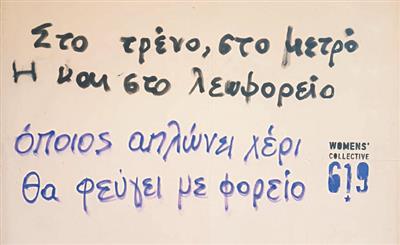 Στο τρένο, στο μετρό
Η και στο λεωφορείο
όποιος απλώνει χέρι
θα φεύγει με φορείο
WOMENS'
COLLECTIVE
6!9